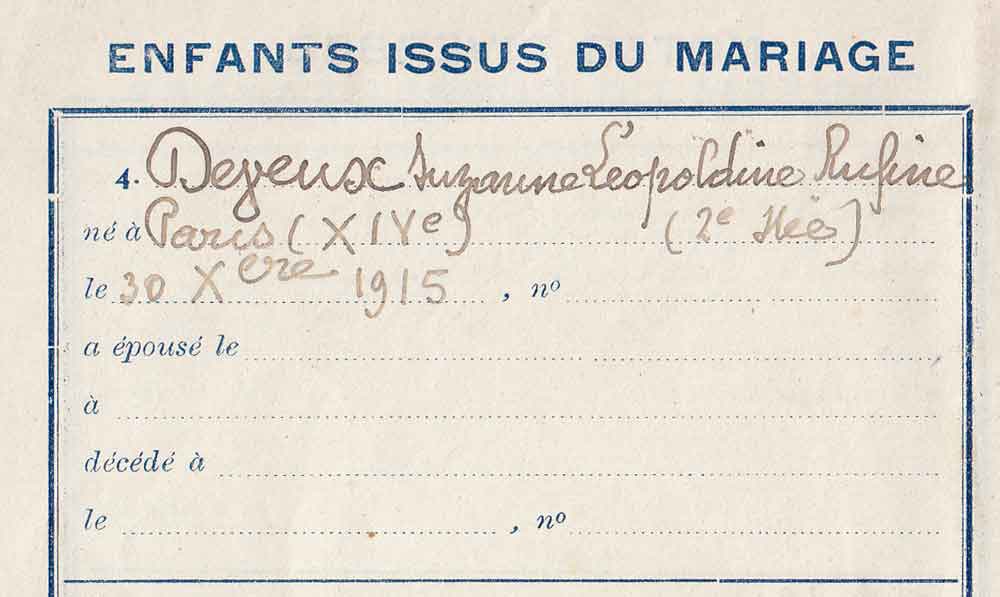 ENFANTS ISSUS DU MARIAGE
4. Deyeux Suzanne Léopoldine Rufine
né à Paris (XIVe) (2e Née)
le 30 Xbre 1915, nº
a épousé le
à
décédé à
le , nº